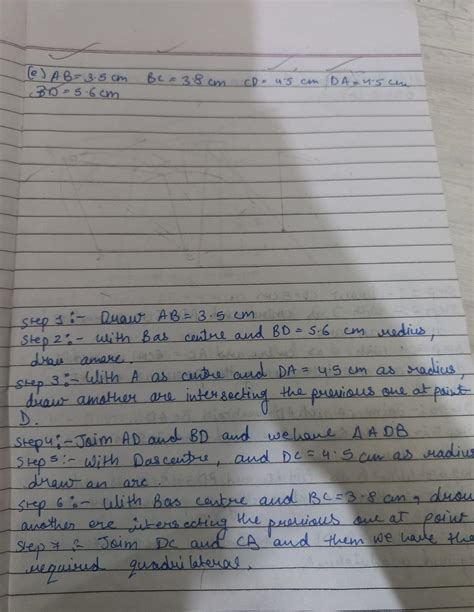 (e) AB=3.5cm BC=3.8cm CD=4.5cm DA=4.5cm
BD=5.6cm
Step 1:- Draw AB=3.5 cm
Step 2:- With B as centre and BD=5.6 cm radius,
draw anarc.
Step 3:- With A as centre and DA=4.5cm as radius,
draw another arc intersecting the previous one at point
D.
Step4:- Join AD and BD and we have ΔADB
Step5:- With D as centre, and DC=4.5cm as radius
draw an arc.
Step 6:- With B as centre and BC=3.8cm, draw
another arc intersecting the previous one at point
Step 7: Join DC and CB and them we have the
required quadrilateral.